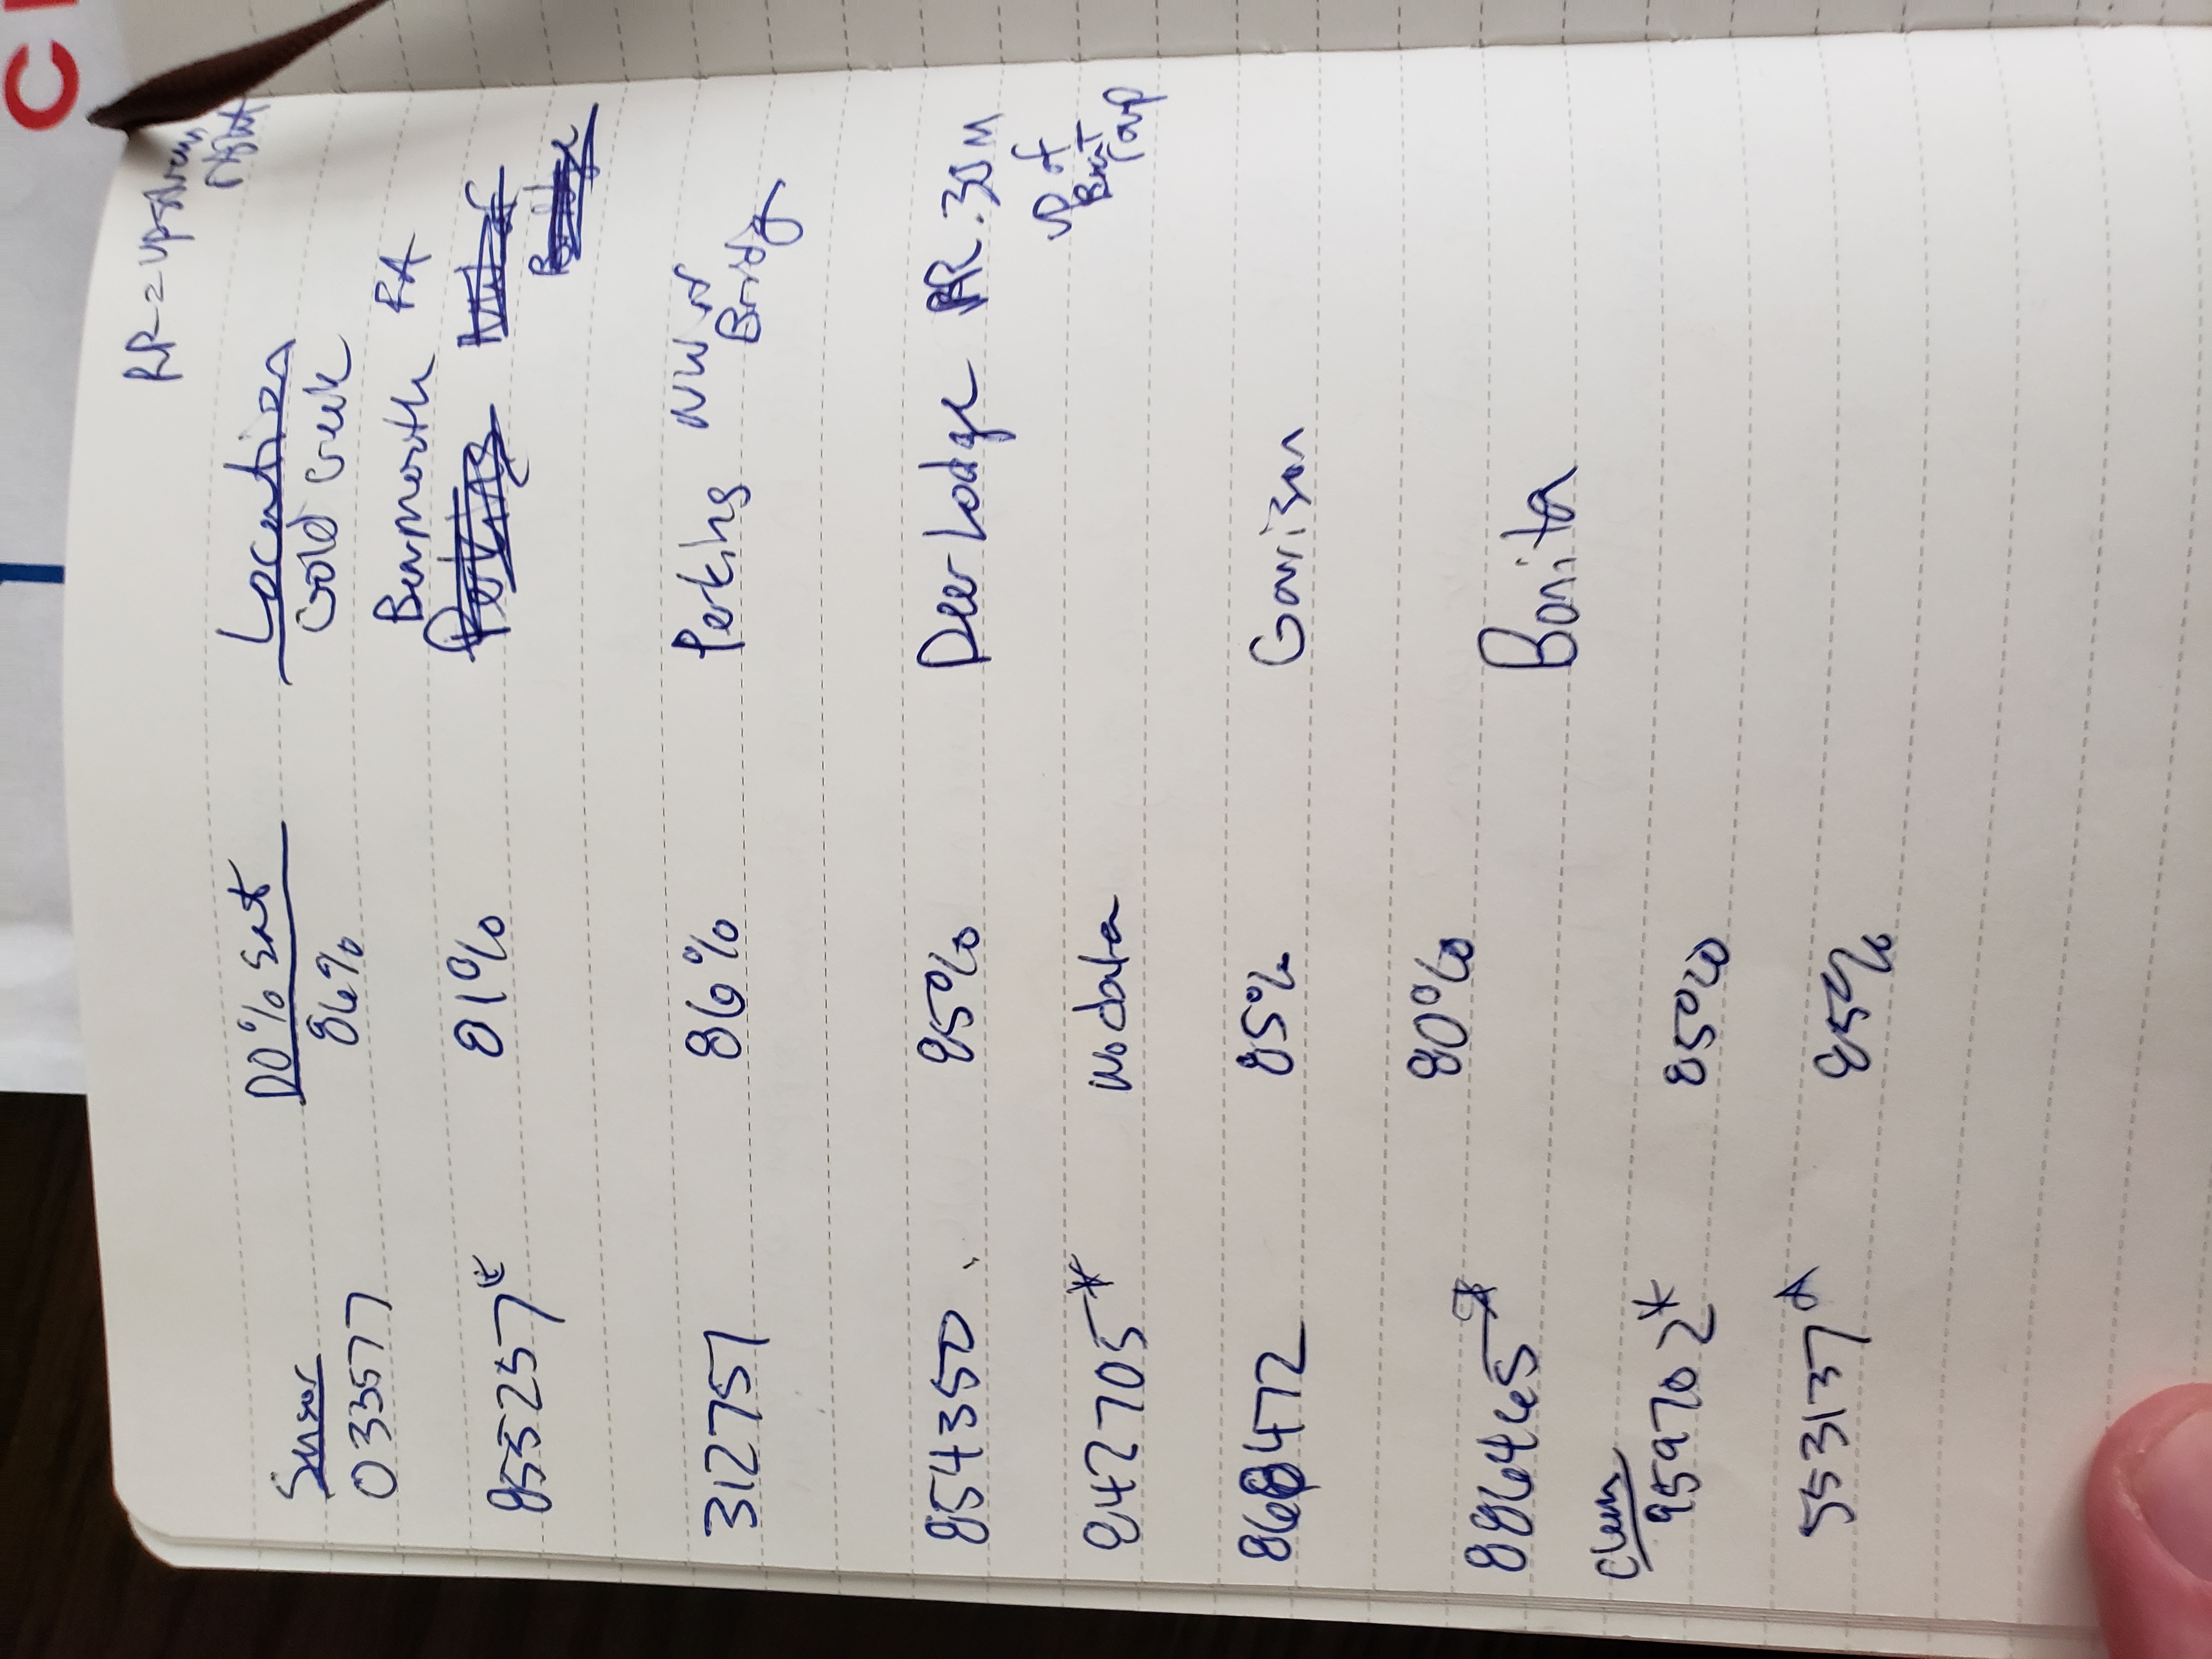 C
RR = upstream
right
Sensor DO % Sat Location
033577 86% Gold Creek
Bearmouth FA
855257* 81% Perkins NW of
Bridge
312751 86% Perkins NW of
Bridge
854350 85% Deer Lodge RR. 30 M
up of
Boat
ramp
842705* No data
868472 85% Garrison
80%
886465*
Bonita
Clean
959702* 85%
553137* 85%